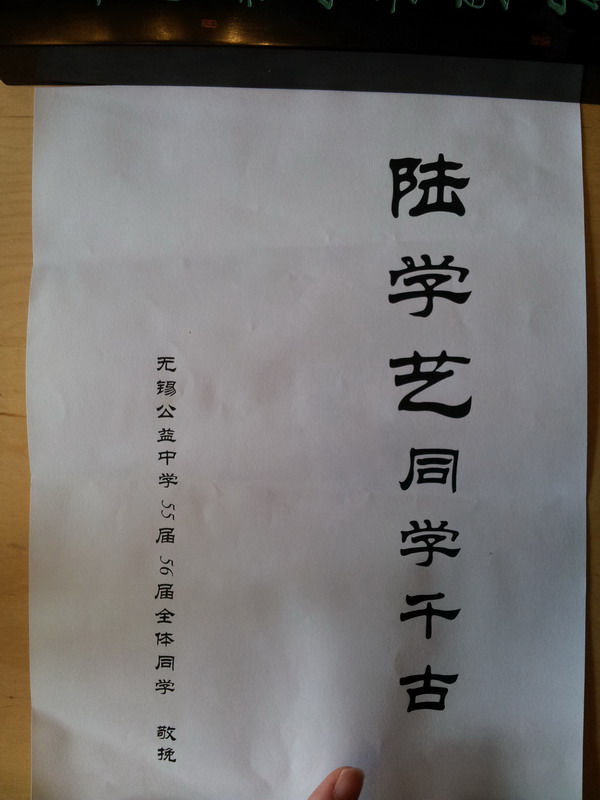 陆学艺同学千古
无锡公益中学55届56届全体同学 敬挽